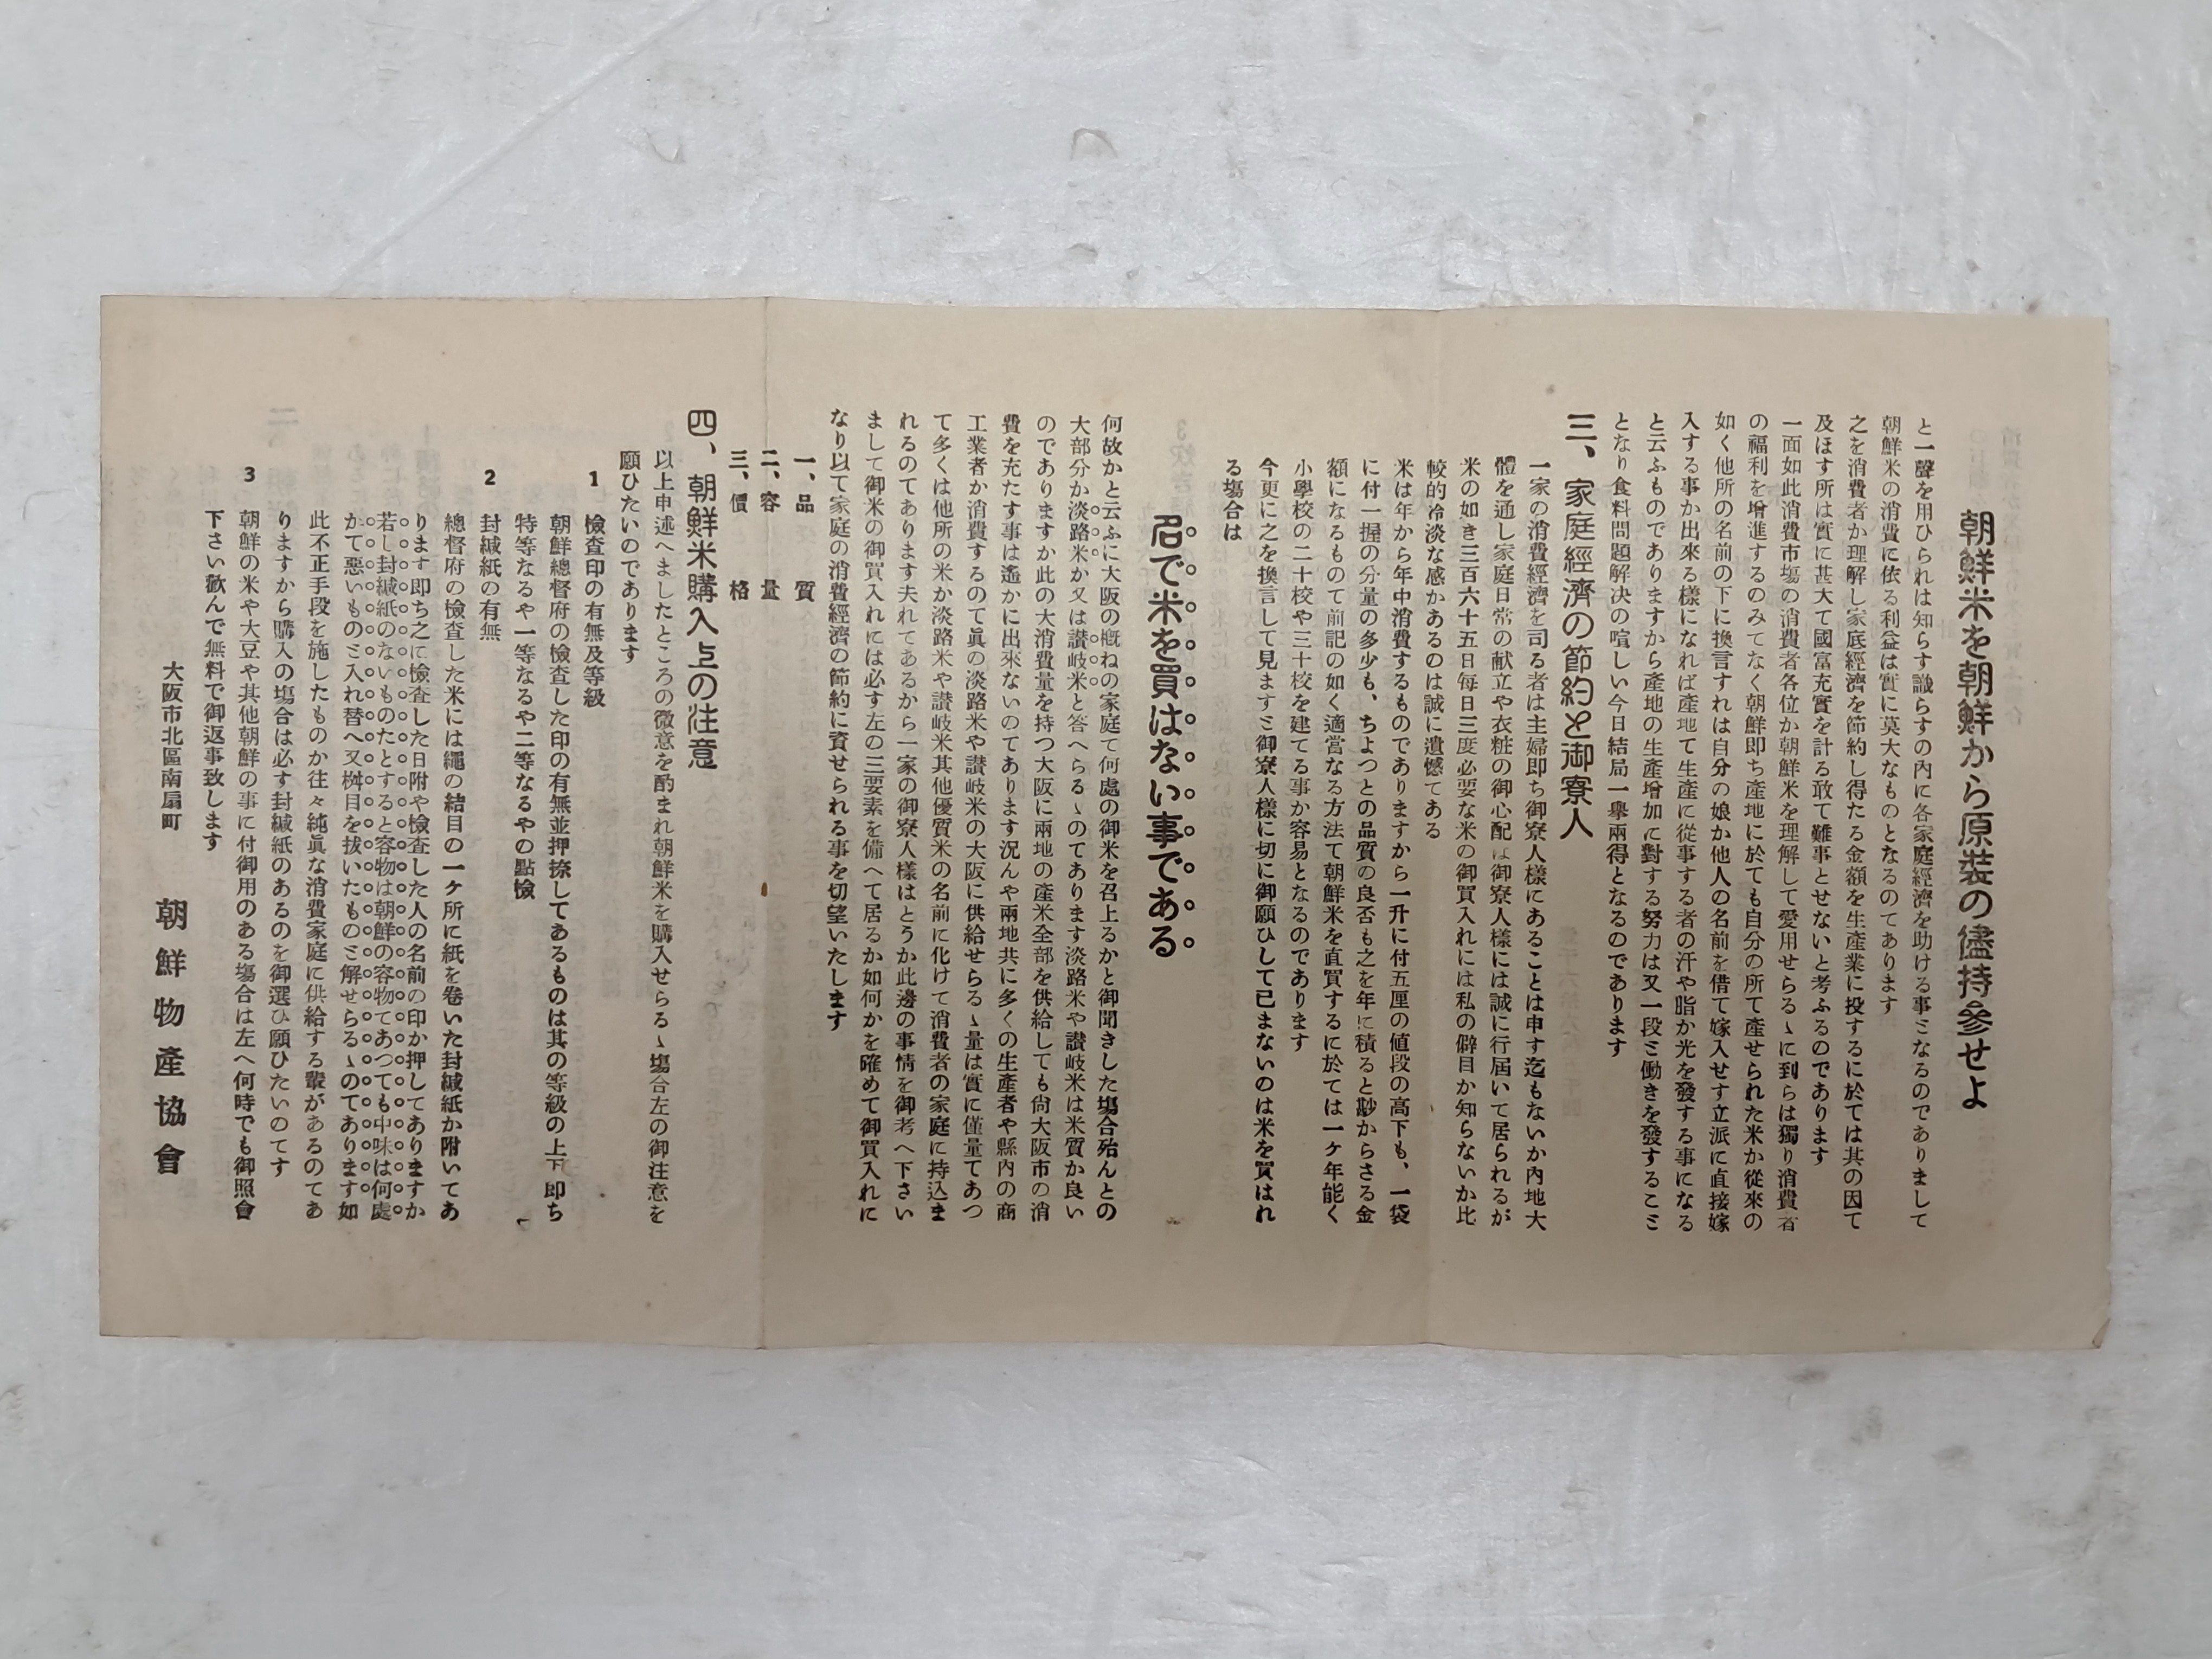 朝鮮米を朝鮮から原裝の儘持參せよ
と一聲を用ひられは知らす識らすの內に各家庭經濟を助ける事ミなるのでありまして
朝鮮米の消費に依る利益は實に莫大なものとなるのてあります
之を消費者か理解し家底經濟を節約し得たる金額を生產業に投するに於ては其の因て
及ほす所は實に甚大て國富充實を計る敢て難事とせないと考ふるのであります
一面如此消費市塲の消費者各位か朝鮮米を理解して愛用せらるゝに到らは獨り消費者
の福利を增進するのみてなく朝鮮即ち產地に於ても自分の所て產せられた米か從來の
如く他所の名前の下に換言すれは自分の娘か他人の名前を借て嫁入せす立派に直接嫁
入する事か出來る樣になれば產地て生產に從事する者の汗や脂か光を發する事になる
と云ふものでありますから產地の生產增加に對する努力は又一段ミ働きを發するこミ
となり食料問題解決の喧しい今日結局一擧兩得となるのであります
三、家庭經濟の節約と御寮人
一家の消費經濟を司る者は主婦即ち御寮人樣にあることは申す迄もないか內地大
體を通し家庭日常の献立や衣粧の御心配は御寮人樣には誠に行屆いて居られるが
米の如き三百六十五日每日三度必要な米の御買入れには私の僻目か知らないか比
較的冷淡な感かあるのは誠に遺憾てある
米は年から年中消費するものでありますから一升に付五厘の値段の高下も、一袋
に付一握の分量の多少も、ちよつとの品質の良否も之を年に積ると尠からさる金
額になるもので前記の如く適當なる方法て朝鮮米を直買するに於ては一ケ年能く
小學校の二十校や三十校を建てる事か容易となるのであります
今更に之を換言して見ますミ御寮人樣に切に御願ひして已まないのは米を買はれ
る塲合は
名で米を買はない事である
何故かと云ふに大阪の槪ねの家庭て何處の御米を召上るかと御聞きした塲合殆んとの
大部分か淡路米か又は讃岐米と答へらるゝのてあります淡路米や讃岐米は米質か良い
のでありますか此の大消費量を持つ大阪に兩地の產米全部を供給しても尙大阪市の消
費を充たす事は遙かに出來ないのてあります況んや兩地共に多くの生產者や縣內の商
工業者か消費するのて眞の淡路米や讃岐米の大阪に供給せらるゝ量は實に僅量てあつ
て多くは他所の米か淡路米や讃岐米其他優質米の名前に化けて消費者の家庭に持込ま
れるのてあります夫れてあるから一家の御寮人樣はとうか此邊の事情を御考へ下さい
まして御米の御買入れには必す左の三要素を備へて居るか如何かを確めて御買入れに
なり以て家庭の消費經濟の節約に資せられる事を切望いたします
一、品質
二、容量
三、價格
四、朝鮮米購入上の注意
以上申述へましたところの微意を酌まれ朝鮮米を購入せらるゝ塲合左の御注意を
願ひたいのであります
1 檢査印の有無及等級
朝鮮總督府の檢査した印の有無並押捺してあるものは其の等級の上下即ち
特等なるや一等なるや二等なるやの點檢
2 封緘紙の有無
總督府の檢査した米には繩の結目の一ケ所に紙を卷いた封緘紙か附いてあ
ります即ち之に檢査した日附や檢査した人の名前の印か押してありますか
若し封緘紙のないものたとすると容物は朝鮮の容物てあつても中味は何處
かて惡いものミ入れ替へ又桝目を拔いたものミ解せらるゝのてあります如
此不正手段を施したものか往々純眞な消費家庭に供給する輩があるのてあ
りますから購入の塲合は必す封緘紙のあるのを御選ひ願ひたいのてす
3 朝鮮の米や大豆や其他朝鮮の事に付御用のある塲合は左へ何時でも御照會
下さい歡んで無料で御返事致します
大阪市北區南扇町
朝鮮物產協會